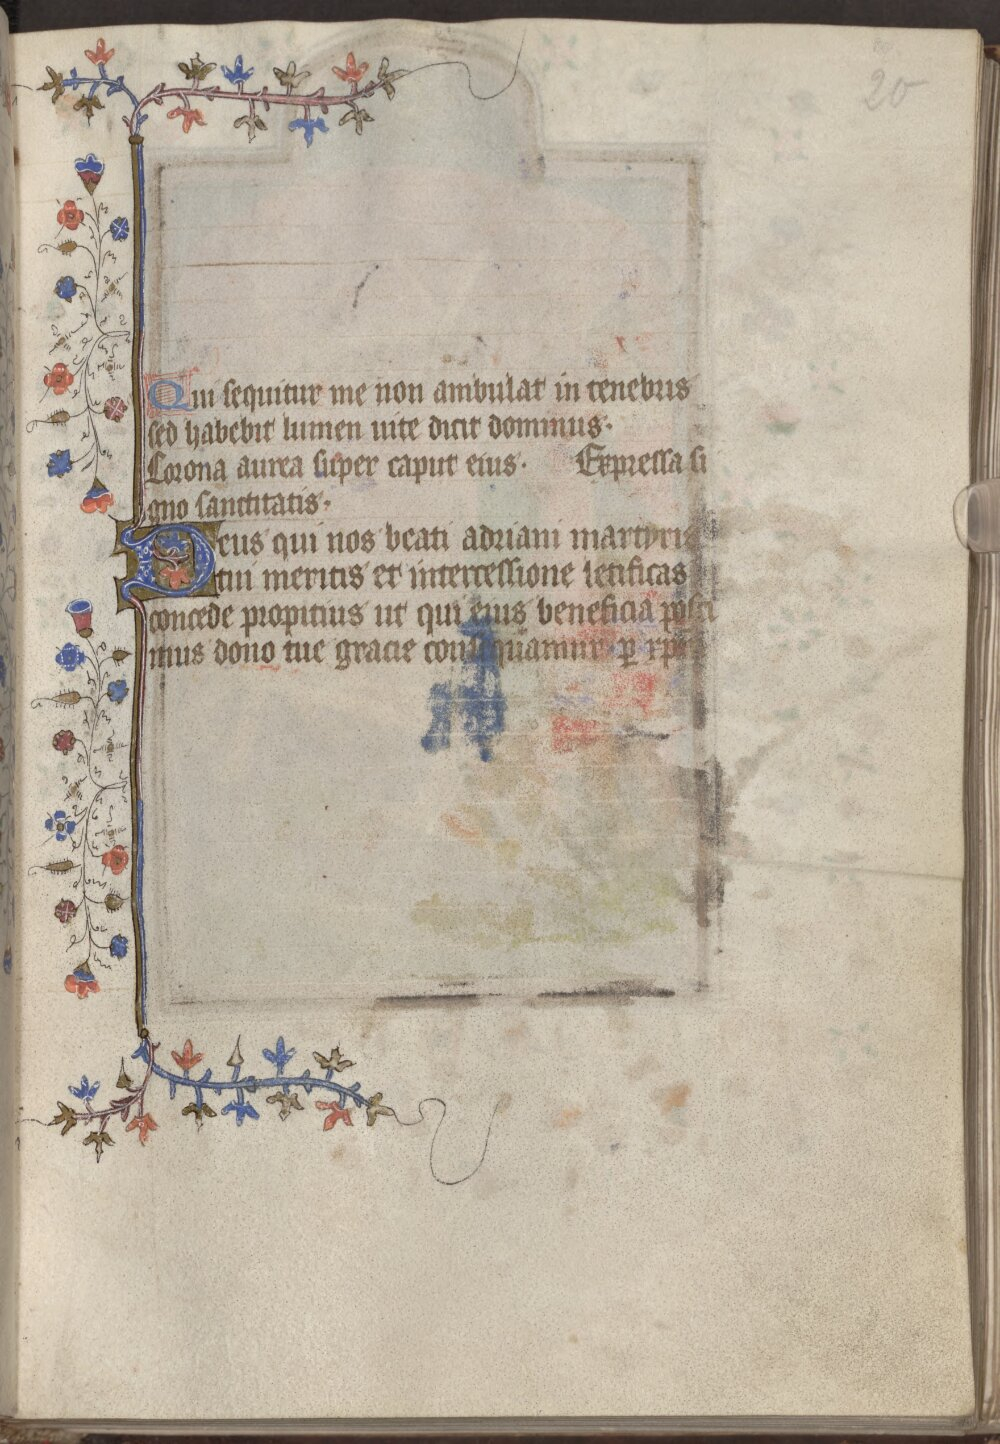 20
Qui sequitur me non ambulat in tenebris
sed habebit lumen uite dicit dominus·
Corona aurea super caput eius· Expressa si
gno sanctitatis·
Deus qui nos beati adriani martyris
tui meritis et intercessione letificas
concede propitius ut qui eius beneficia posci
mus dono tue gracie consequamur· p xpm